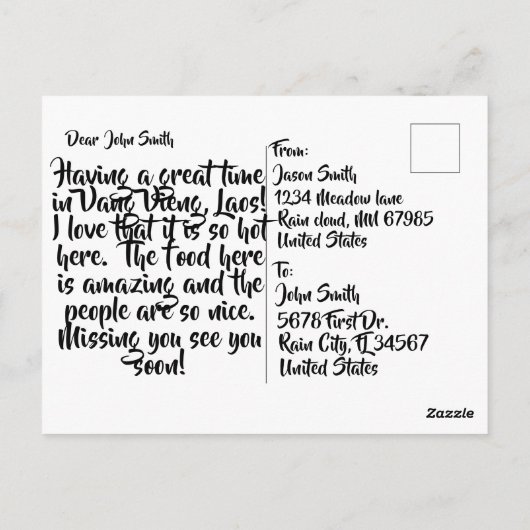 Dear John Smith
Having a great time
in Vang Vieng, Laos!
I love that it is so hot
here. The food here
is amazing and the
people are so nice.
Missing you see you
soon!
From:
Jason Smith
1234 Meadow lane
Rain cloud, MN 67985
United States
To:
John Smith
5678 First Dr.
Rain City, FL 34567
United States
Zazzle